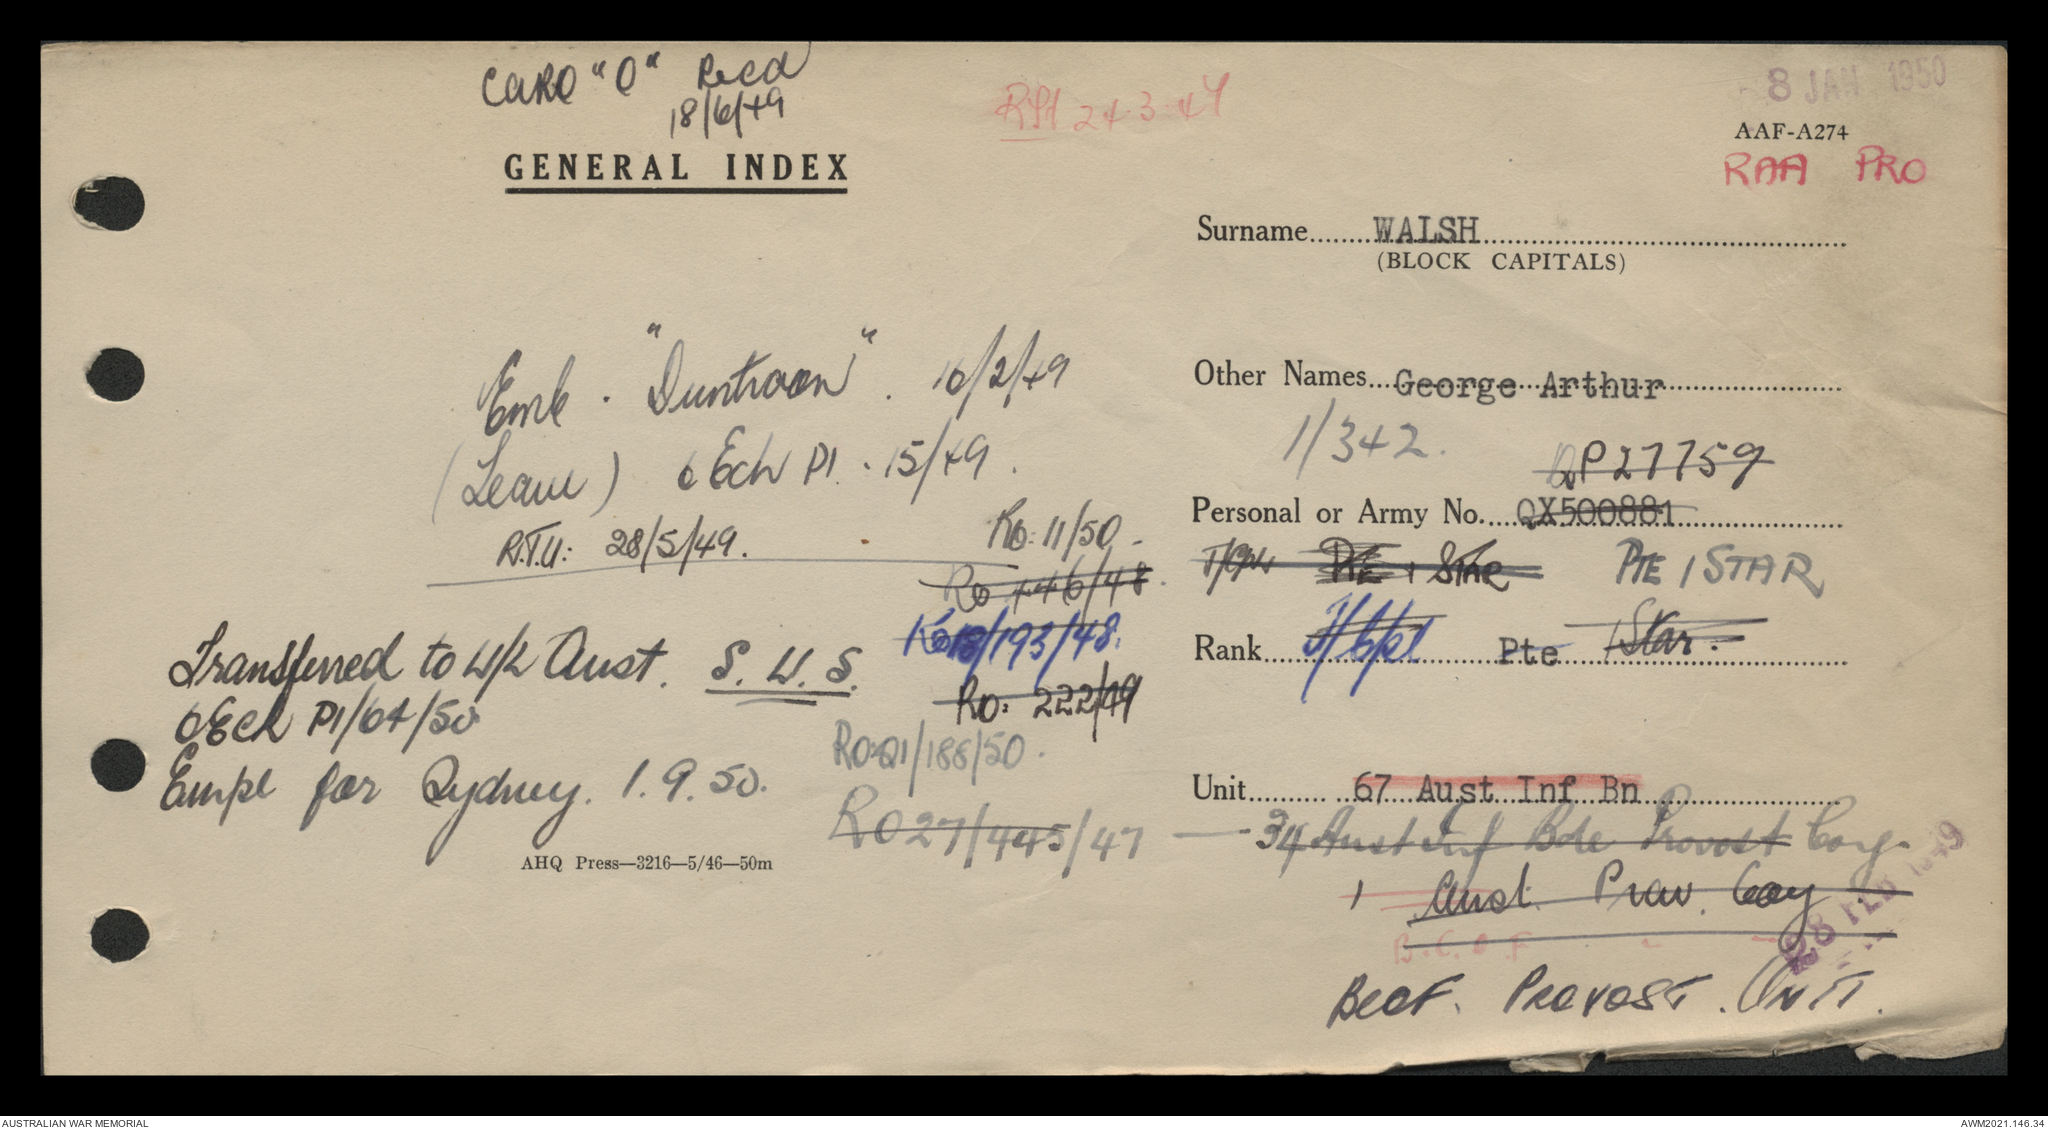 CARO "O" Recd
18/6/49
8 JAN 1950
AAF-A274
RAA PRO
GENERAL INDEX
Surname WALSH
(BLOCK CAPITALS)
Emb. "Duntroon". 10/2/49
Other Names George Arthur
1/342.
(Leave) 6 Ech P1. 15/49.
QP27759
Personal or Army No. QX500881
R.T.U: 28/5/49.
RO: 11/50
RO 446/48.
T/Cpl PTE 1 STAR PTE 1 STAR
/193/48.
Rank T/Cpl Pte 1 Star.
Transferred to W/L Aust. S. W. S.
RO: 222/49
6 Ech P1/64/50
RO: Q1/188/50.
Empl for Sydney. 1.9.50.
Unit 67 Aust Inf Bn
RO 27/445/47 — 34 Aust Inf Bde Provost Coy.
AHQ Press—3216—5/46—50m
1 Aust. Prov. Coy
28 FEB 1949
B.C.O.F " "
BCOF. PROVOST. UNIT.
AUSTRALIAN WAR MEMORIAL
AWM2021.146.34